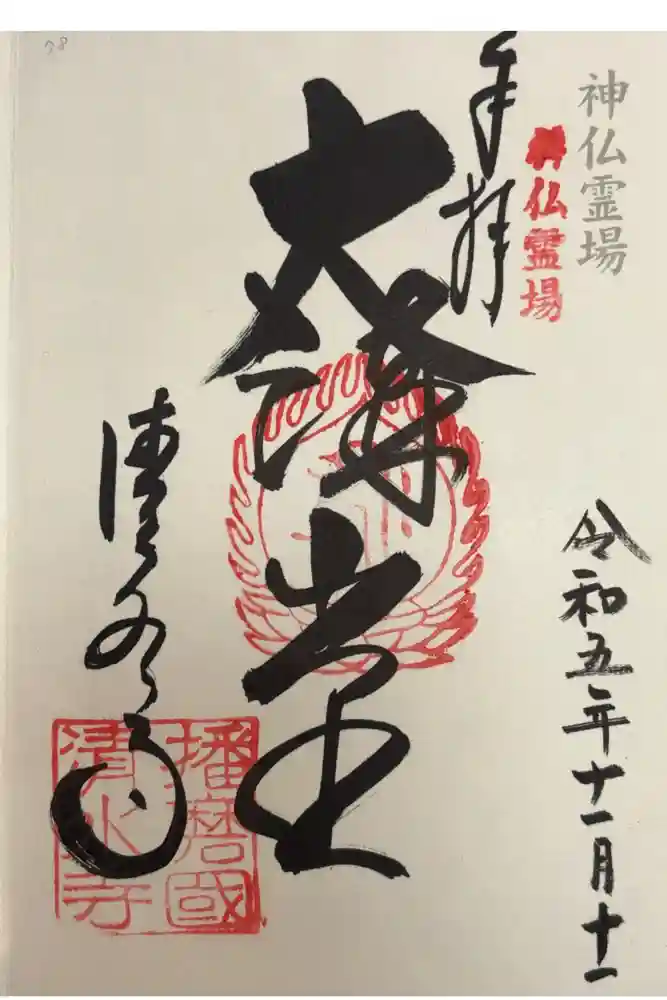 神仏霊場
神仏霊場
奉拝
令和五年十一月十一
大講堂
清水寺
播磨國
清水寺
38